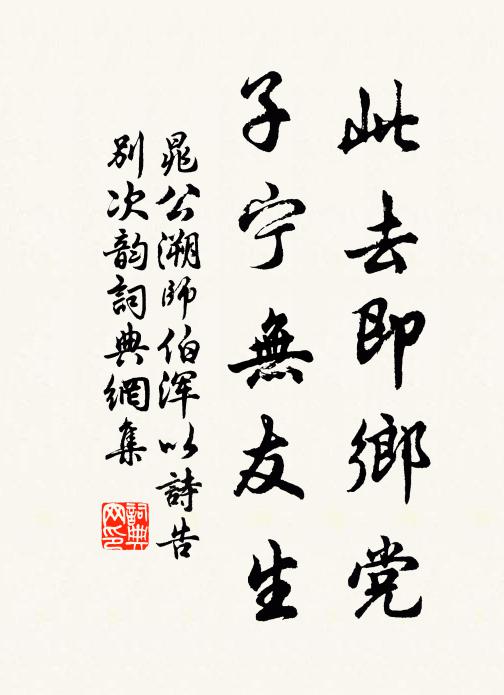 此去即鄉党
子宁無友生
晁公溯師伯浑以詩告
別次韵詞典網集
詞典
网印